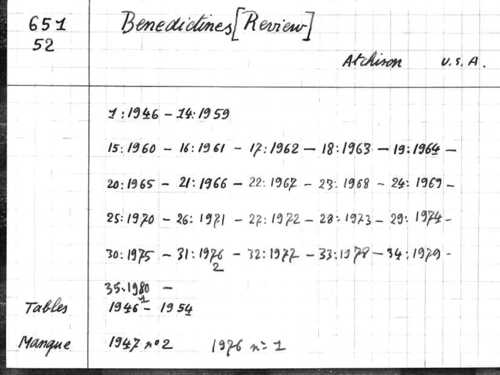 651 Benedictines [Review]
52
Atchison U.S.A.
1:1946 – 14:1959
15:1960 – 16:1961 – 17:1962 – 18:1963 – 19:1964 –
20:1965 – 21:1966 – 22:1967 – 23:1968 – 24:1969 –
25:1970 – 26:1971 – 27:1972 – 28:1973 – 29:1974 –
30:1975 – 31:1976 – 32:1977 – 33:1978 – 34:1979 –
2
35:1980 –
1
Tables 1946 – 1954
Manque 1947 n°2 1976 n° 1